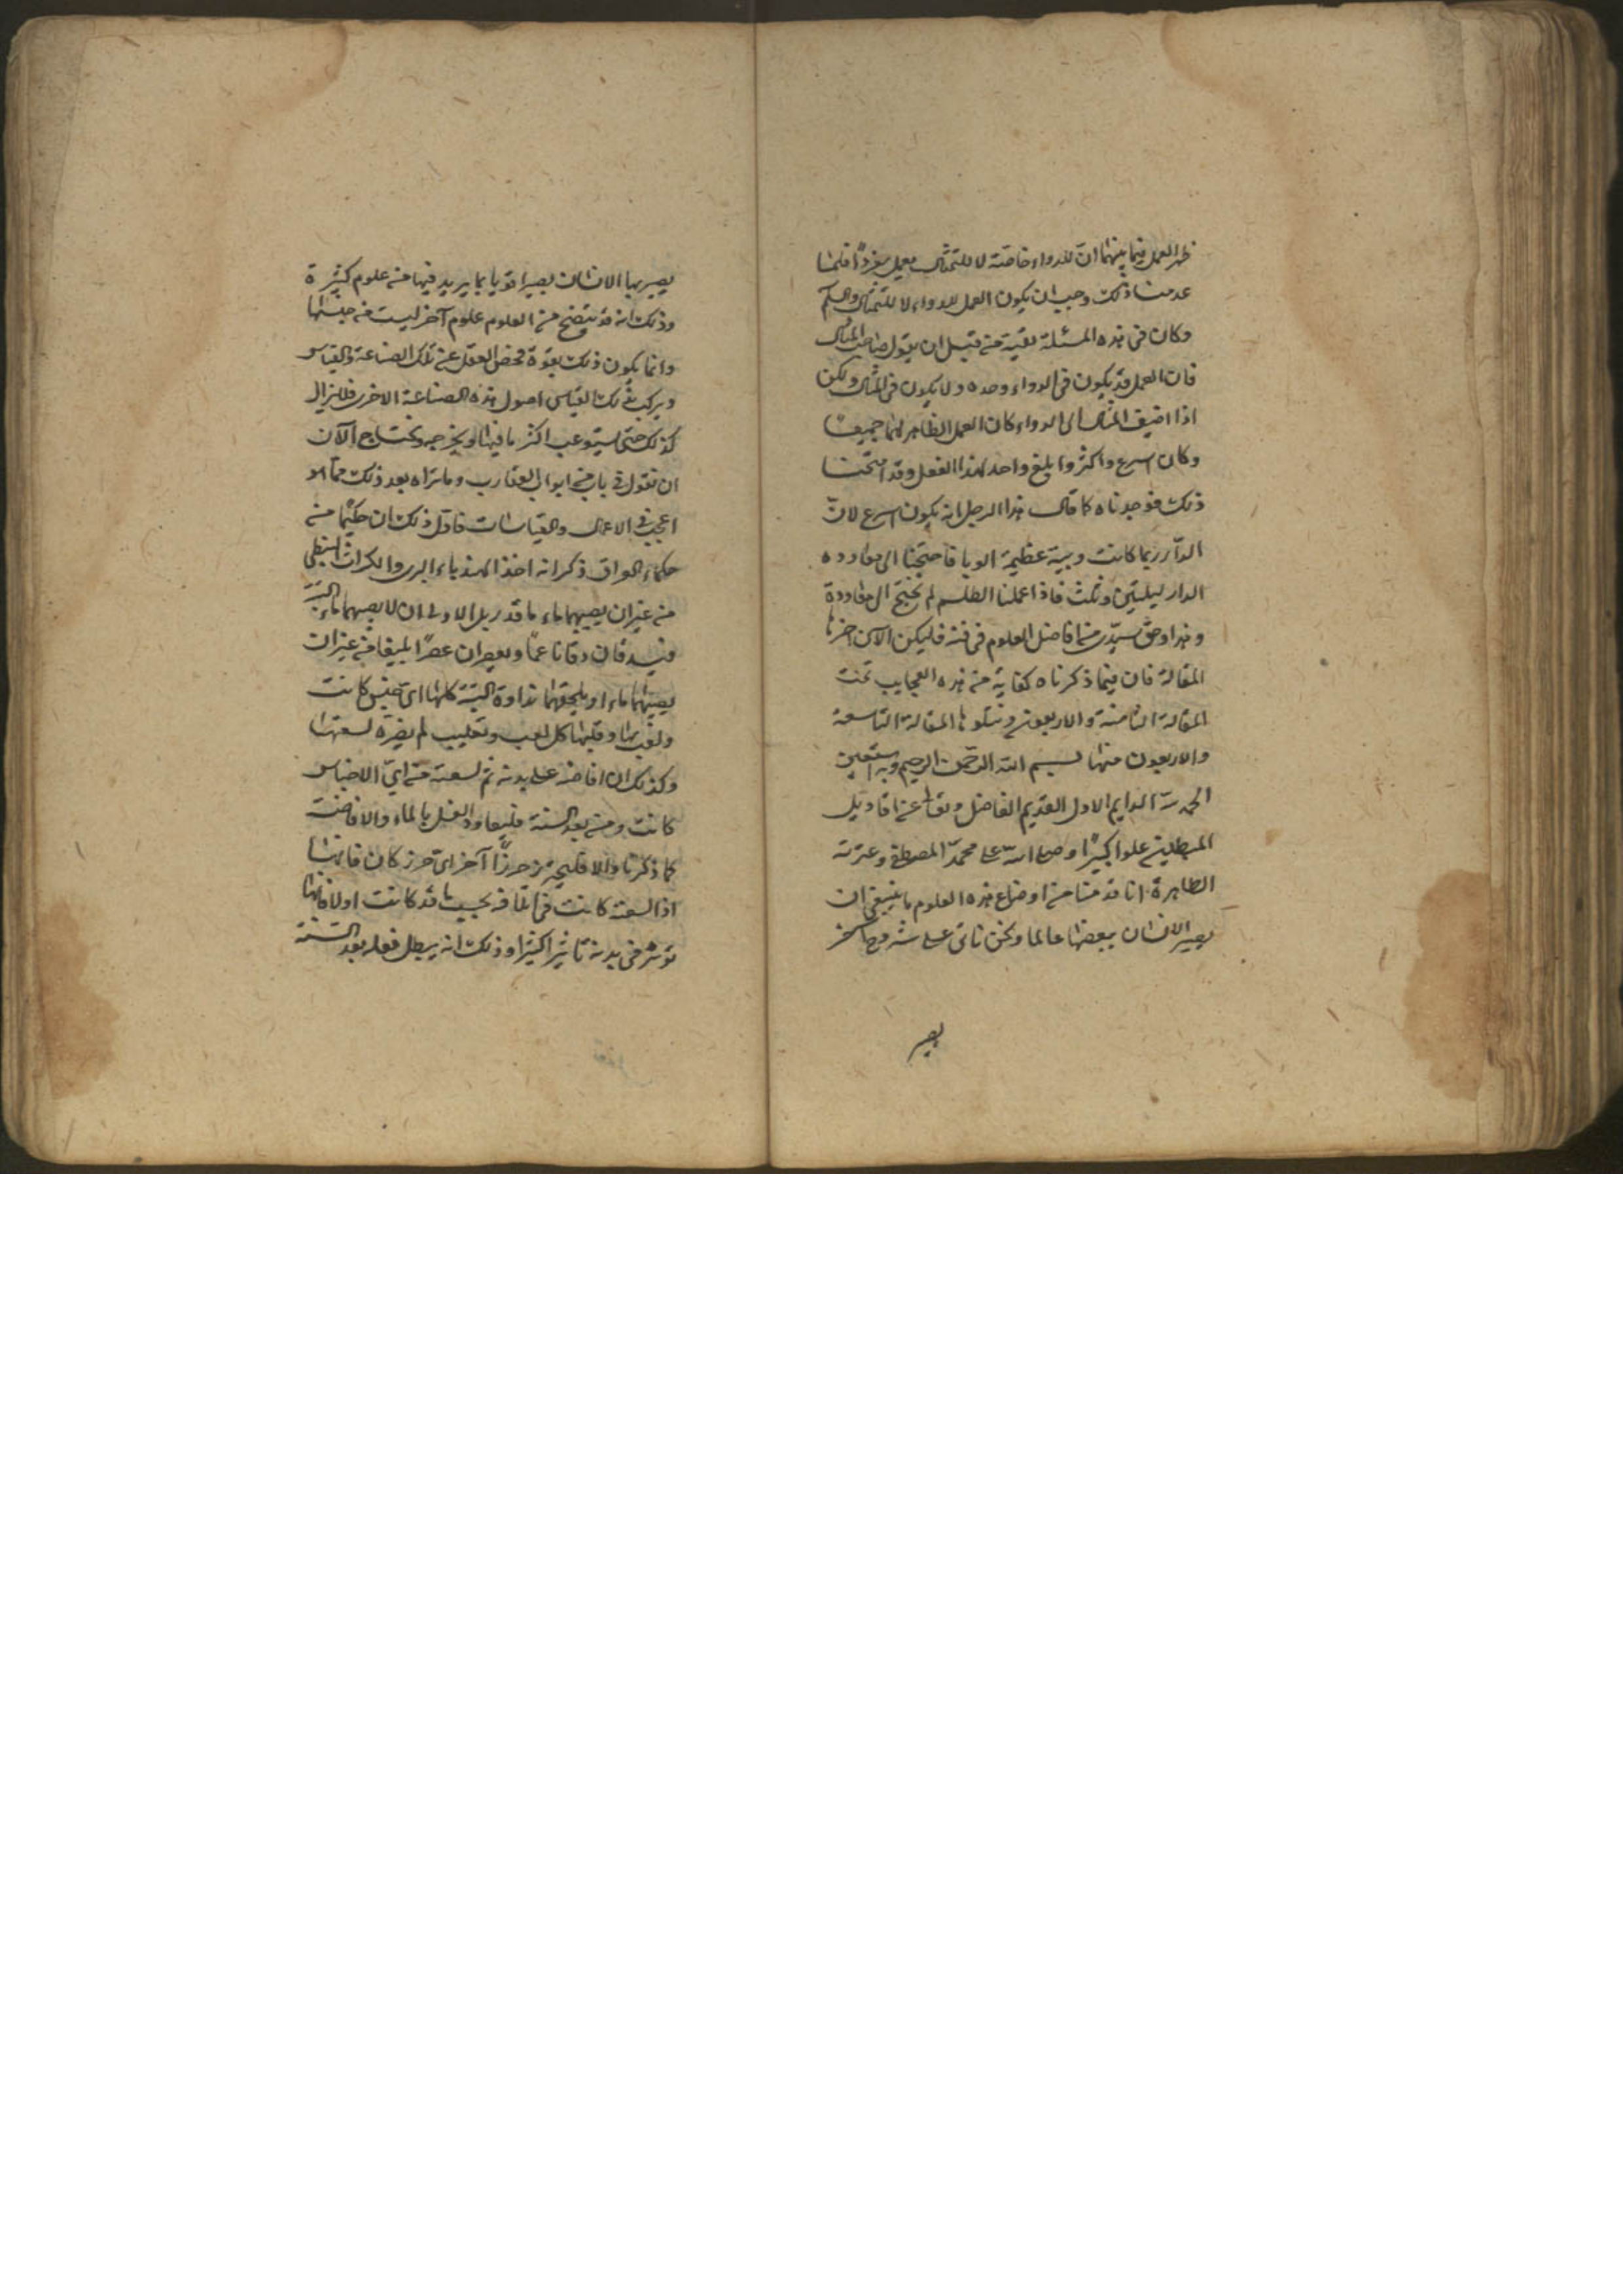 ظهر العمل فيما بينهما ان للدواء خاصّة لا للتمثال بعمل مفردًا فلمّا
عدمنا ذلك وجب ان يكون العمل للدواء لا للتمثال والسلم
وكان في هذه المسئلة بقية من قبل ان يقول صاحب المثال
فان العمل قد يكون في الدواء وحده ولا يكون في المثال ولكن
اذا اضيف المثال الى الدواء كان العمل الظاهر لهما جميعًا
وكان اسرع واكثر وابلغ واحد لهذا الفعل وقد امتحنا
ذلك فوجدناه كما قال هذا الرجل انه يكون اسرع لانّ
الدّار ربما كانت وبية عظيمة الوبا فاحتجنا الى معاودة
الدار ليلتين وثلث فاذا عملنا الطلسم لم نحتج الى معاودة
وهذا وحقّ سيّدي من افاضل العلوم في فنه فليكن الآن اخر
المقالة فان فيما ذكرناه كفاية من هذه العجايب تمت
المقالة الثامنة والاربعون وتتلوها المقالة التاسعة
والاربعون منها بسم الله الرحمن الرحيم وبه استعين
الحمد لله الدايم الاول القديم الفاضل وتعالى عن اقاويل
المبطلين علوا كبيرًا وصلى الله على محمد المصطفى وعترته
الطاهرة انا قدمنا من اوضاع هذه العلوم ما ينبغي ان
يصير الانسان ببعضها عالما ونحن ناتي على شروح اخر
يصير
يصير بها الانسان بصيرا قويا بما يريد فيها من علوم كثيرة
وذلك انه قد يتضح من العلوم علوم آخر ليست من جنسها
وانما يكون ذلك بقوة محض العقل عن تلك الصناعة والقياس
ويركب بذلك القياس اصول هذه الصناعة الاخرى فلا يزال
كذلك حتى يستوعب اكثر ما فيها ويخرجه ونحتاج الآن
ان نقول في باب من ابواب العقارب وما تراه بعد ذلك مما هو
اعجب في الاعمال والقياسات فاول ذلك ان حكيمًا من
حكماء العراق ذكر انه اخذ الهندباء البري والكراث النبطي
من غير ان يصيبهما ماء ما قدر بل الاولى ان لا يصيبهما ماء البتة
فيدقان دقا ناعمًا ويعصران عصرًا بليغا من غير ان
يصيبهما ماء او يلحقهما نداوة البتة كلها اي جنس كانت
ولعب بها وقلبها كل لعب وتقليب لم يضره لسعها
وكذلك ان افاضه على بدنه ثم لسعته من ايّ الاجناس
كانت ومن بعد السنة فليعاود الغسل بالماء والافاضة
كما ذكرنا والا فليحترز حرزًا آخر اي حرز كان فانها
اذا لسعته كانت في اتلافه بحسب ما قد كانت اولا فانها
تؤثر في بدنه تاثيرا كثيرا وذلك انه يبطل فعله بعد السنة